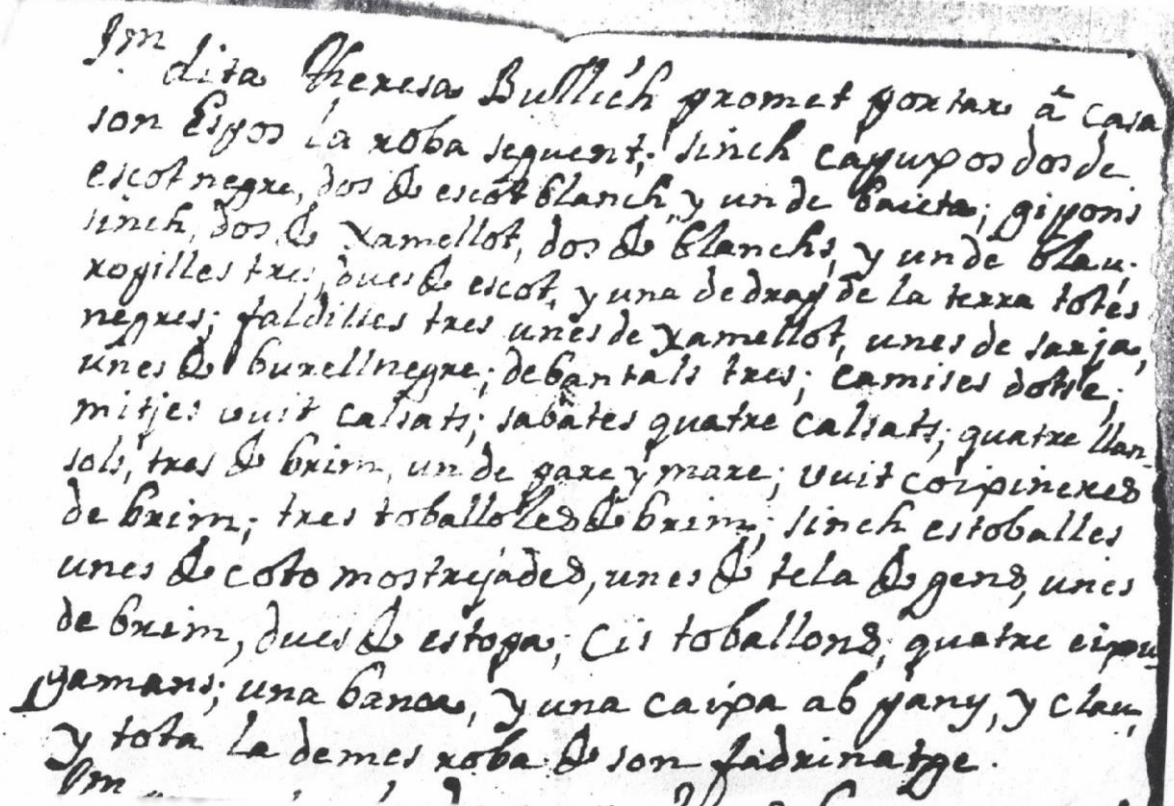 Itm
dita Theresa Bullich promet portar â casa
son Espos la roba seguent; sinch capuxos dos de
escot negre, dos de escot blanch, y un de baieta; gipons
sinch, dos de xamellot, dos de blanchs, y un de blau;
ropilles tres, dues de escot, y una de drap de la terra totes
negres; faldilles tres unes de xamellot, unes de sarja,
unes de burell negre; debantals tres; camises dotse;
mitjes vuit calsats; sabates quatre calsats; quatre llan-
sols, tres de brim, un de pare y mare; vuit coixineres
de brim; tres toballoles de brim; sinch estoballes
unes de coto mostrejades, unes de tela de gens, unes
de brim, dues de estopa; Cis toballons; quatre eixu-
gamans; una banca, y una caixa ab pany, y clau,
y tota la demes roba de son fadrinatge.
Itm